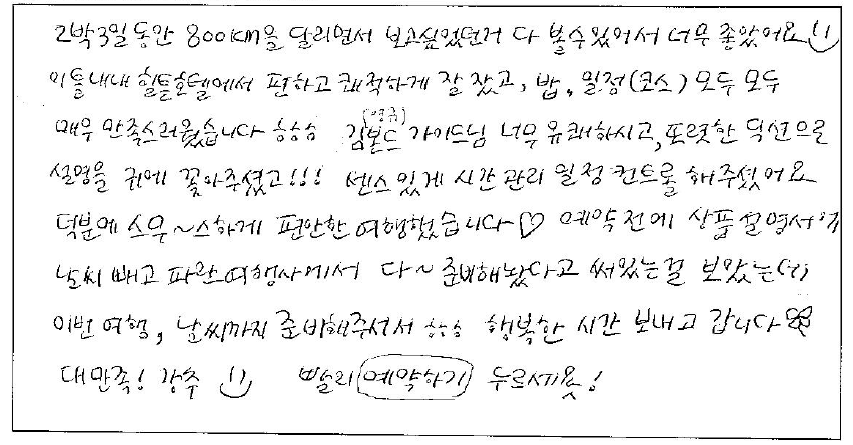 2박3일동안 800km을 달리면서 보고싶었던거 다 볼수있어서 너무 좋았어요
이틀내내 힐튼호텔에서 편하고 쾌적하게 잘 잤고, 밥, 일정(코스) 모두 모두
매우 만족스러웠습니다 ㅎㅎㅎ 김본드(영규) 가이드님 너무 유쾌하시고, 또렷한 딕션으로
설명을 귀에 꽂아주셨고!!! 센스있게 시간관리 일정 컨트롤 해주셨어요
덕분에 스무~스하게 편안한 여행했습니다♡ 예약전에 상품설명서에
날씨 빼고 파란여행사에서 다~ 준비해놨다고 써있는걸 보았는데
이번 여행, 날씨까지 준비해주셔서 ㅎㅎㅎ 행복한 시간 보내고 갑니다
대만족! 강추 빨리 예약하기 누르세욧!